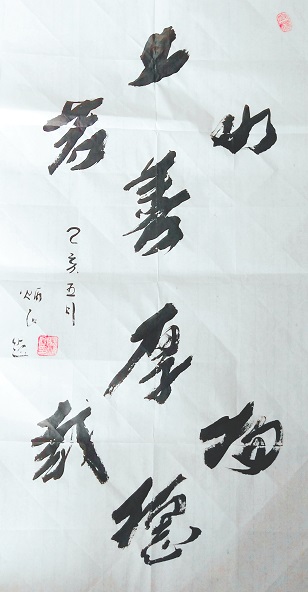 上善若水
厚德载物
己亥五月